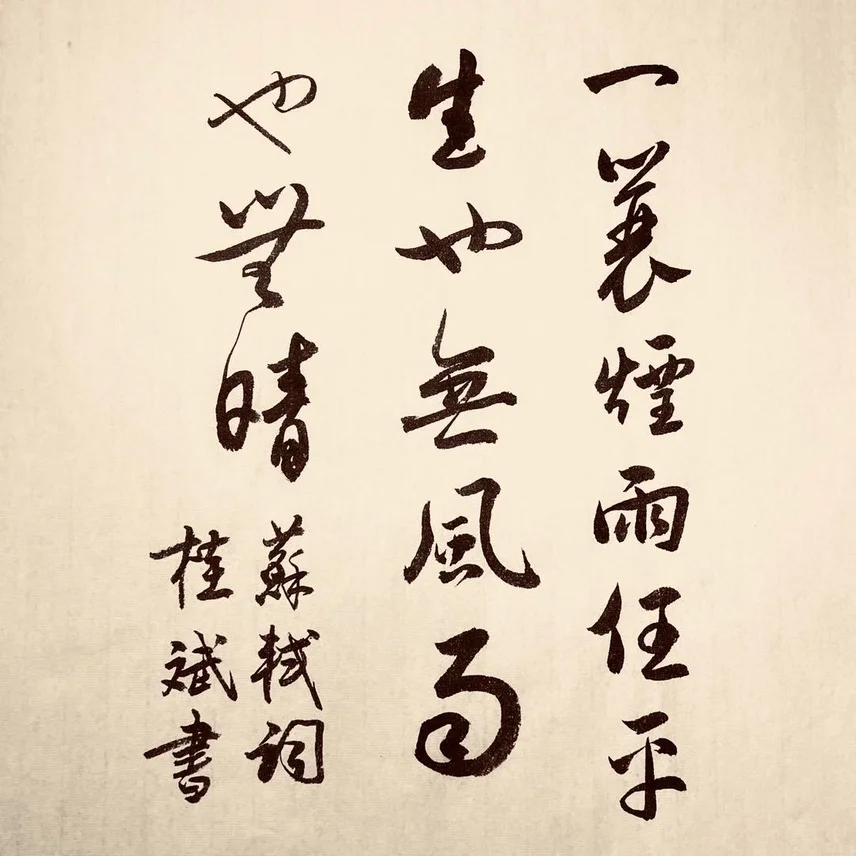 一蓑煙雨任平
生也無風雨
也無晴
蘇軾詞
桂斌書